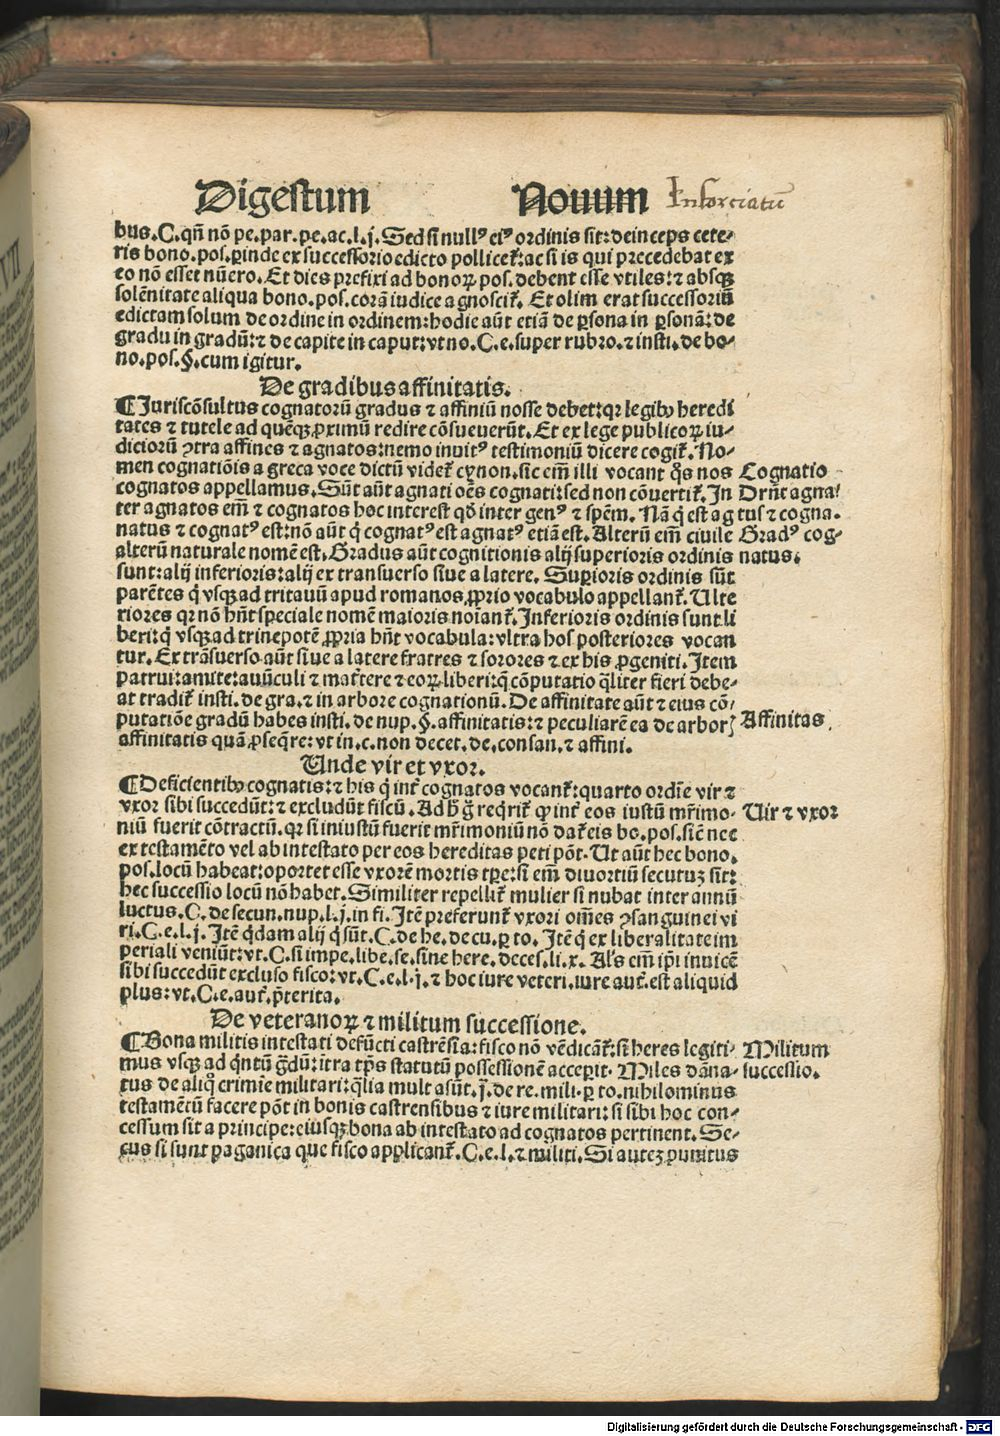 Digestum Nouum Inforciatū
bus.C.qn̄ nō pe.par.pe.ac.l.j.Sed si nullꝰ eiꝰ ordinis sit:deinceps cete⸗
ris bono.pos.ꝑinde ex successorio edicto pollicet̄:ac si is qui precedebat ex
eo nō esset nūero. Et dies prefixi ad bonoꝝ pos.debent esse vtiles:⁊ absqꝫ
solēnitate aliqua bono.pos.corā iudice agnoscit̄. Et olim erat successoriū
edictam solum de ordine in ordinem:hodie aūt etiā de ꝑsona in ꝑsonā:de
gradu in gradū:⁊ de capite in caput:vt no.C.e.super rubro.⁊ insti.de bo⸗
no.pos.§.cum igitur.
De gradibus affinitatis.
¶Juriscōsultus cognatorū gradus ⁊ affiniū nosse debet:qꝛ legibꝰ heredi
tates ⁊ tutele ad quēqꝫ ꝓximū redire cōsueuerūt. Et ex lege publicoꝝ iu⸗
diciorū ↄtra affines ⁊ agnatos:nemo inuitꝰ testimoniū dicere cogit̄. No⸗
men cognatiōis a greca voce dictū videt̄ cynon.sic em̄ illi vocant q̄s nos
cognatos appellamus. Sūt aūt agnati oēs cognati:sed non cōuertit̄. In
ter agnatos em̄ ⁊ cognatos hoc interest qd̄ inter genꝰ ⁊ spēm. Nā q̇ est ag
natus ⁊ cognatꝰ est:nō aūt q̇ cognatꝰ est agnatꝰ etiā est. Alterū em̄ ciuile
alterū naturale nomē est. Gradus aūt cognitionis alij superioris ordinis
sunt:alij inferioris:alij ex transuerso siue a latere. Suꝑioris ordinis sūt
parētes q̇ vsqꝫ ad tritauū apud romanos ꝓprio vocabulo appellant̄. Ulte
riores qꝛ nō hn̄t speciale nomē maioris noīant̄. Inferioris ordinis sunt li
beri:q̇ vsqꝫ ad trinepotē ꝓpria hn̄t vocabula:vltra hos posteriores vocan
tur. Ex trāsuerso aūt siue a latere fratres ⁊ sorores ⁊ ex his ꝓgeniti. Item
patrui:amite:auūculi ⁊ mat̄tere ⁊ eoꝝ liberi:q̇ cōputatio q̄liter fieri debe⸗
at tradit̄ insti.de gra.⁊ in arbore cognationū. De affinitate aūt ⁊ eius cō⸗
putatiōe graduū habes insti.de nup.§.affinitatis:⁊ peculiarē ea de arborē
affinitatis quā ꝓseq̄re:vt in.c.non decet.de.consan.⁊ affini.
Cognatio
Drn̄t agna⸗
tus ⁊ cogna⸗
Gradꝰ cog⸗
natus.
Affinitas.
Unde vir et vxor.
¶Deficientibꝰ cognatis:⁊ his q̇ int̄ cognatos vocant̄:quarto ordīe vir ⁊
vxor sibi succedūt:⁊ excludūt fiscū. Ad h̄ ḡ reqrit̄ ꝙ int̄ eos iustū mr̄imo⸗
niū fuerit cōtractū.qꝛ si iniustū fuerit mr̄imoniū nō dat̄ eis bo.pos.sic nec
ex testamēto vel ab intestato per eos hereditas peti pōt. Ut aūt hec bono.
pos.locū habeat:oportet esse vxorē mortis tꝑe:si em̄ diuortiū secutuꝫ sit:
hec successio locū nō habet. Similiter repellit̄ mulier si nubat inter annū
luctus.C.de secun.nup.l.j.in fi. Itē preferunt̄ vxori om̄es ↄsanguinei vi
ri.C.e.l.j. Itē q̇dam alij q̇ sūt.C.de he.de cu.ꝑ to. Itē q̇ ex liberalitate im
periali veniūt:vt.C.si impe.libe.se.sine here.dēces.li.x. Als̄ em̄ ip̄i inuicē
sibi succedūt excluso fisco:vt.C.e.l.j.⁊ hoc iure veteri.iure aut̄.est aliquid
plus:vt.C.e.aut̄.p̄terita.
Uir ⁊ vxor
De veteranoꝝ ⁊ militum successione.
¶Bona militis intestati defūcti castrēsia:fisco nō vēdicāt̄:si heres legiti⸗
mus vsqꝫ ad q̇ntū gd̄ū:īra tp̄s statutū possessionē acceperit. Miles dāna⸗
tus de aliq̊ crimīe militari:q̄lia mult asūt.j̄.de re.mili.ꝑ to.nihilominus
testamētū facere pōt in bonis castrensibus ⁊ iure militari:si sibi hoc con⸗
cessum sit a principe:eiusqꝫ bona ab intestato ad cognatos pertinent. Se⸗
cus si sunt paganica que fisco applicant̄.C.e.l.⁊ militi. Si auteꝫ punitus
Militum
successio.
Digitalisierung gefördert durch die Deutsche Forschungsgemeinschaft - DFG